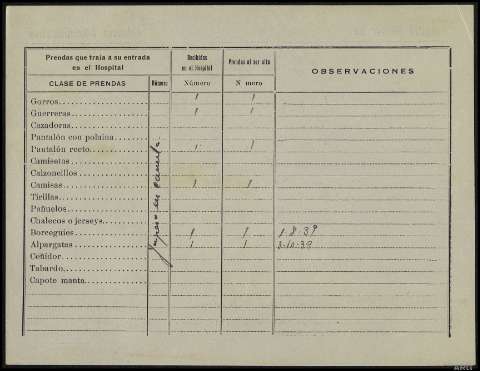 Prendas que traía a su entrada en el Hospital
Recibidas en el Hospital
Prendas al ser alta
OBSERVACIONES
CLASE DE PRENDAS
Número
Número
N mero
Gorros 1 1
Guerreras 1 1
Cazadoras
Pantalón con polaina
Pantalón recto 1 1
Camisetas
Calzoncillos
Camisas 1 1
Tirillas
Pañuelos
Chalecos o jerseys
Borceguíes 1 1 1.8.39
Alpargatas 1 1 2-10-39
Ceñidor
Tabardo
Capote manta